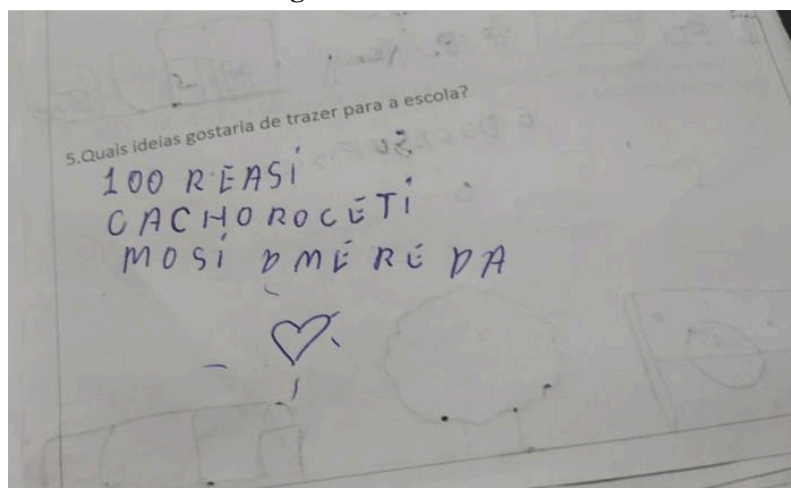 5.Quais ideias gostaria de trazer para a escola?
100 REASI
CACHOROCETI
MOSI DMERE DA